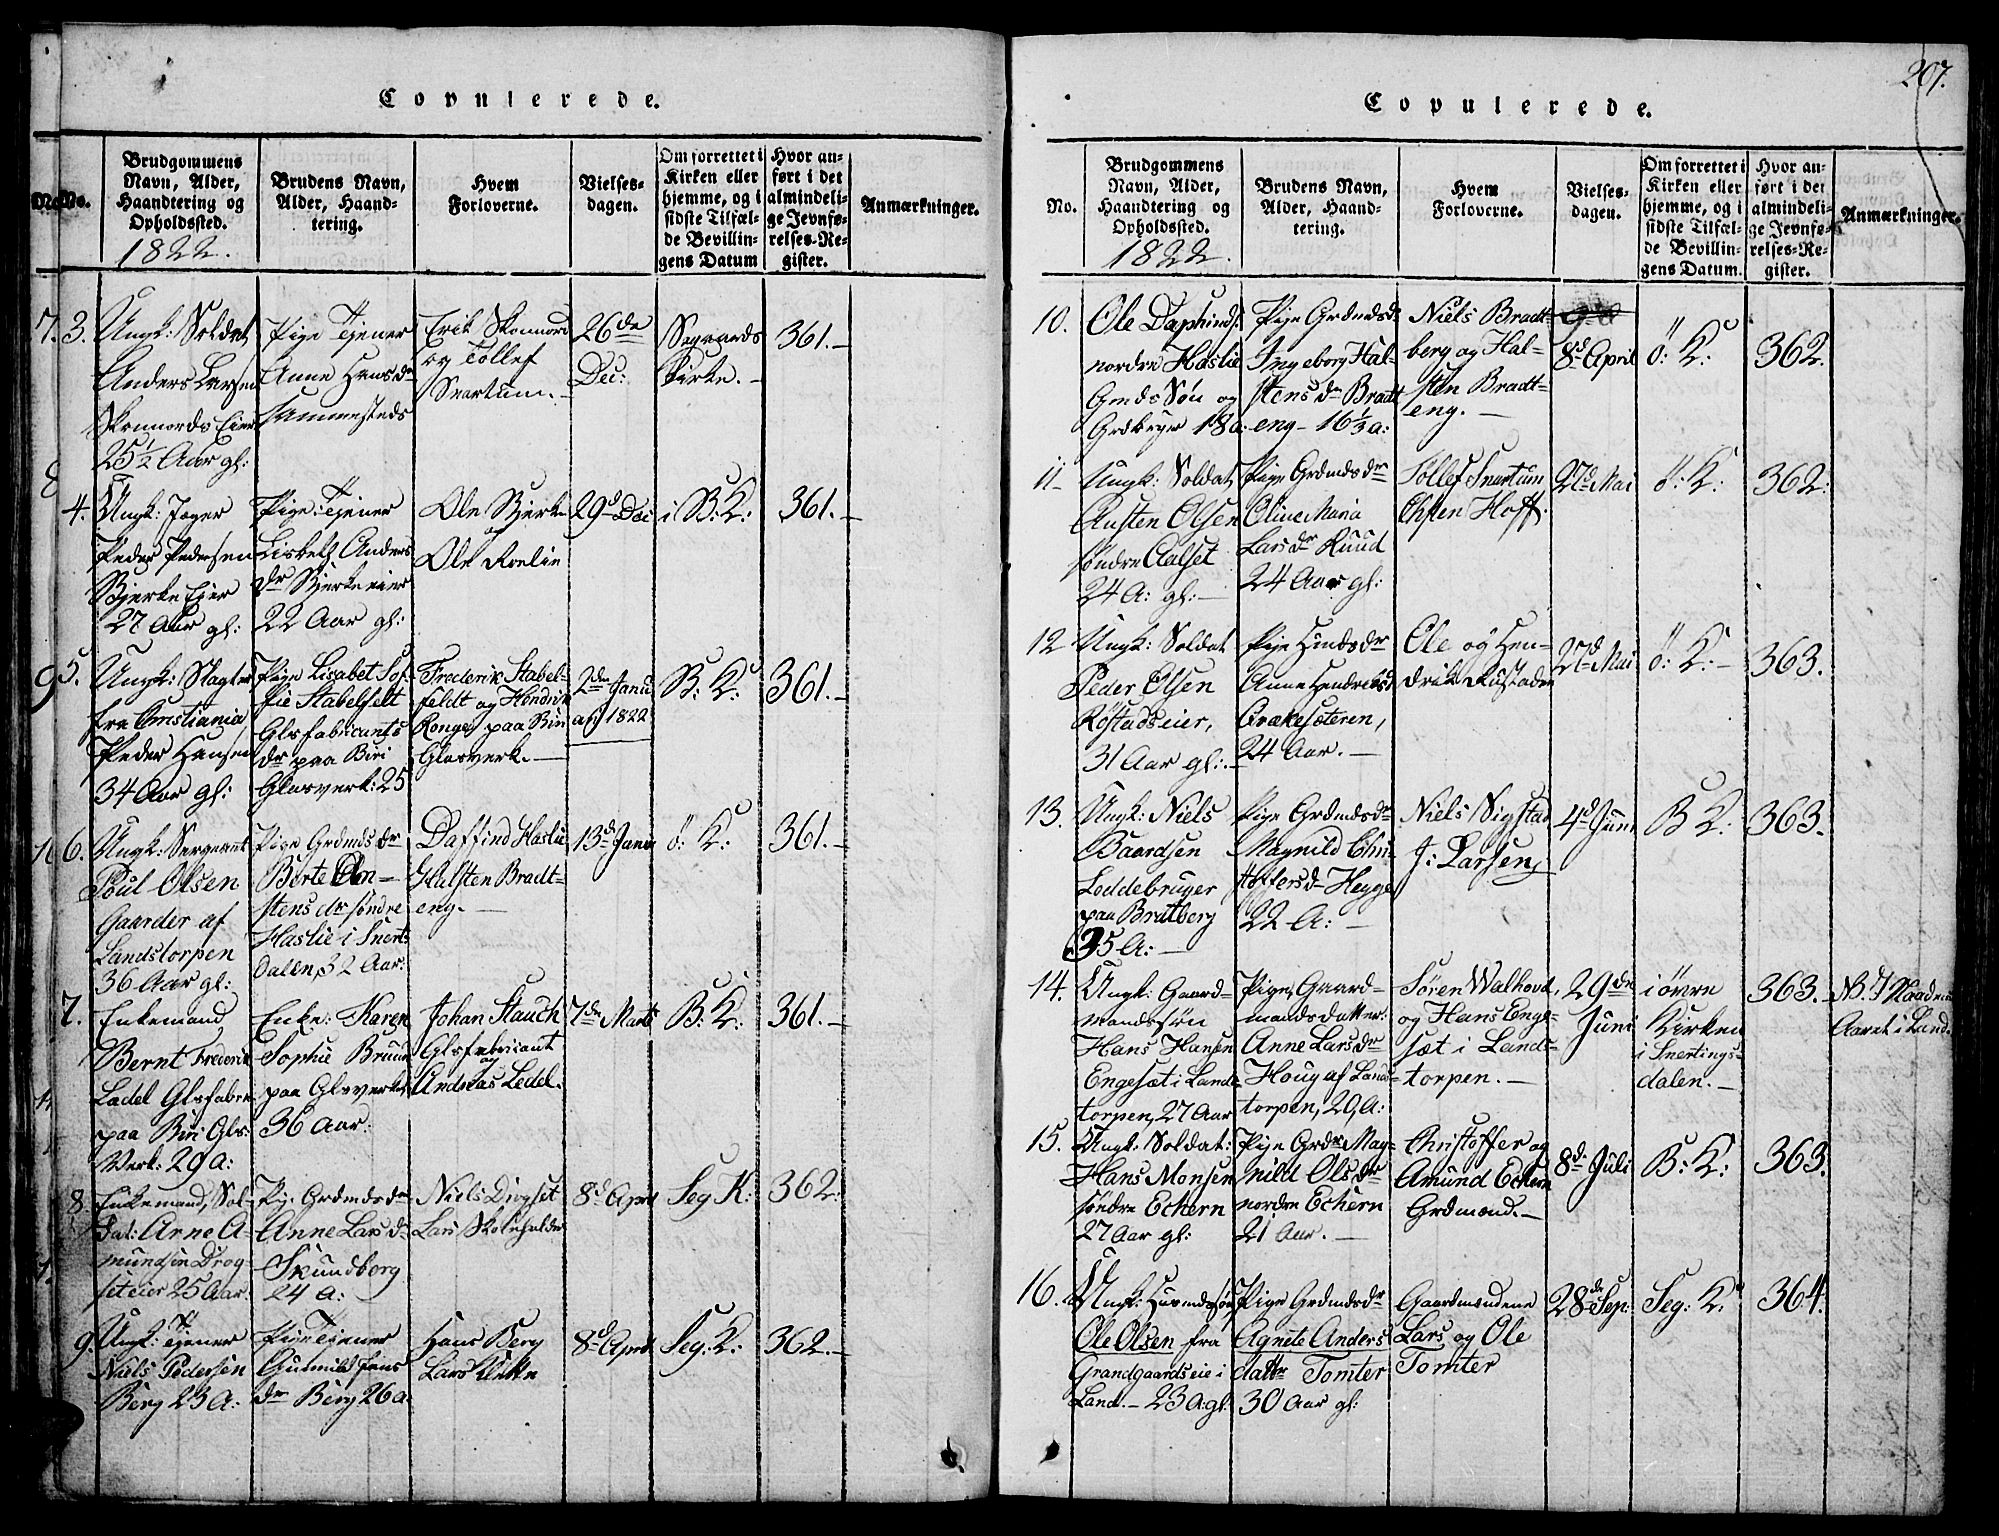 207.
Copulerede.
No.
Brudgommens
Navn, Alder,
Haandtering og
Opholdssted.
1822.
Brudens Navn,
Alder, Haand-
tering.
Hvem
Forloverne.
Vielses-
dagen.
Om forrettet i
Kirken eller
hjemme, og i
sidste Tilfæl-
de Bevillin-
gens Datum
Hvor an-
ført i det
almindeli-
ge Jevnfø-
relses-Re-
gister.
Anmærkninger.
3.
Ungk: Soldat
Anders Larsen
Skonnords Eier
25½ Aar gl:
Pige Tjener
Anne Hansdr
sammesteds
Erik Skonnord
og Tollef
Snartum.
26de
Dec:
Kirke.
361.
4.
Ungk: Jæger
Peder Pedersen
Bjerke Eier
27 Aar gl:
Pige: Tjener
Lisbeth Anders
dr Bjerke eier
22 Aar gl:
Ole Bjerke
og
Ole
29d Dec
i B: K:
361.
5.
Ungk: Slagter
fra Christiania
Peder Hansen
34 Aar gl:
Pige Lisabet Sof
fie Stabelfelt
Glsfabricants
dr paa Biri
Glasverk: 25
Frederik Stabel-
feldt og Hendrik
paa Biri
Glasverk.
2den Janu
ar 1822
B: K:
361.
6.
Ungk: Sergeant
Poul Olsen
Gaarder af
Landstorpen
36 Aar gl:
Pige Grdmds dr
Berte
stens dr søndre
Haslie i Snerts
dalen, 32 Aar:
Daffind Haslie
Halsten Bradt=
eng.
13d Janu
ö: K:
361.
7.
Enkemand,
Bernt Frederik
Ladel Glsfabri
paa Biri Gls:
Verk: 29 a:
Enke: Karen
Sophie Bruun
paa Glsverket,
36 Aar:
Johan Stauch
Glsfabricant
og
Andreas Ledel.
7de Marts
B: K:
361.
8.
Enkemand, Sol-
dat: Arne A-
mundsen Drog-
seteier 25 Aar.
Pige Grdmds dr
Anne Lars dr
Skundberg
24 a:
Niels
Lars Skoleholder
8d April
Seg K:
362:
9.
Ungk: Tjener
Niels Pedersen
Berg 23 A:
Pige Tjener
Gudmild Jens
dr Berg 26 a.
Hans Berg
Lars
8d April
Seg: K:
362.
Copulerede.
No.
Brudgommens
Navn, Alder,
Haandtering og
Opholdssted.
1822.
Brudens Navn,
Alder, Haand-
tering.
Hvem
Forloverne.
Vielses-
dagen.
Om forrettet i
Kirken eller
hjemme, og i
sidste Tilfæl-
de Bevillin-
gens Datum.
Hvor an-
ført i det
almindeli-
ge Jevnfø-
relses-Re-
gister.
Anmærkninger.
10.
Ole
nordre Haslie
Grmds Søn og
18 a:
Pige Grdmdsdr
Ingeborg Hal-
stens dr Bradt
eng - 16½ a:
Niels Bradt-
berg og Hal-
sten Bradt=
eng.
8d April
ö: K:
362.
11
Ungk: Soldat
Austen Olsen
søndre Aalset
24 A: gl:
Pige Grdmdsdr
Oline Maria
Lars dr Ruud
24 Aar gl:
Tollef Snartum
Hoff.
27d Mai
ö: K:
362:
12
Ungk: Soldat
Peder Olsen
Röstadseier,
31 Aar gl:
Pige Hmdsdr
Anne Hendriksd
24 Aar.
Ole og Hen-
drik Röstadeie
27d Mai
ö: K:
363.
13.
Ungk: Niels
Baardsen
Leddebruger
paa Bratberg
35 A:
Pige Grdmdsdr
Magnild Chri-
stoffersdr Hegge
22 A:
Niels Sigstad
J: Larsen,
4d Juni
B K:
363.
14.
Ungk: Gaard=
mandssøn
Hans Hansen
Engesæt i Lands
torpen, 27 Aar
Pige, Gaard=
mandsdatter:
Anne Lars dr
Houg af Lands=
torpen, 29, A:
Søren Walhovd,
og Hans Enge-
sæt i Lands=
torpen.
29de
Juni
i övre
Kirken
i Snertings-
dalen.
363.
NB.
Aaret i Land.
15.
Ungk: Soldat:
Hans Monsen
søndre Echern
27 Aar gl:
Pige Grdr Mag-
nild Ols dr
nordre Echern
21 Aar.
Christoffer og
Amund Echern
Grdmænd.
8d Juli
B: K:
363.
16.
Ungk: Husmdssøn
Ole Olsen fra
Grandgaardseie i
Land. 23 A: gl
Pige Grdmdsdr
Agnete Anders
datr Tomter
30 Aar gl:
Gaardmændene
Lars og Ole
Tomter
28de Sep:
Seg: K:
364.